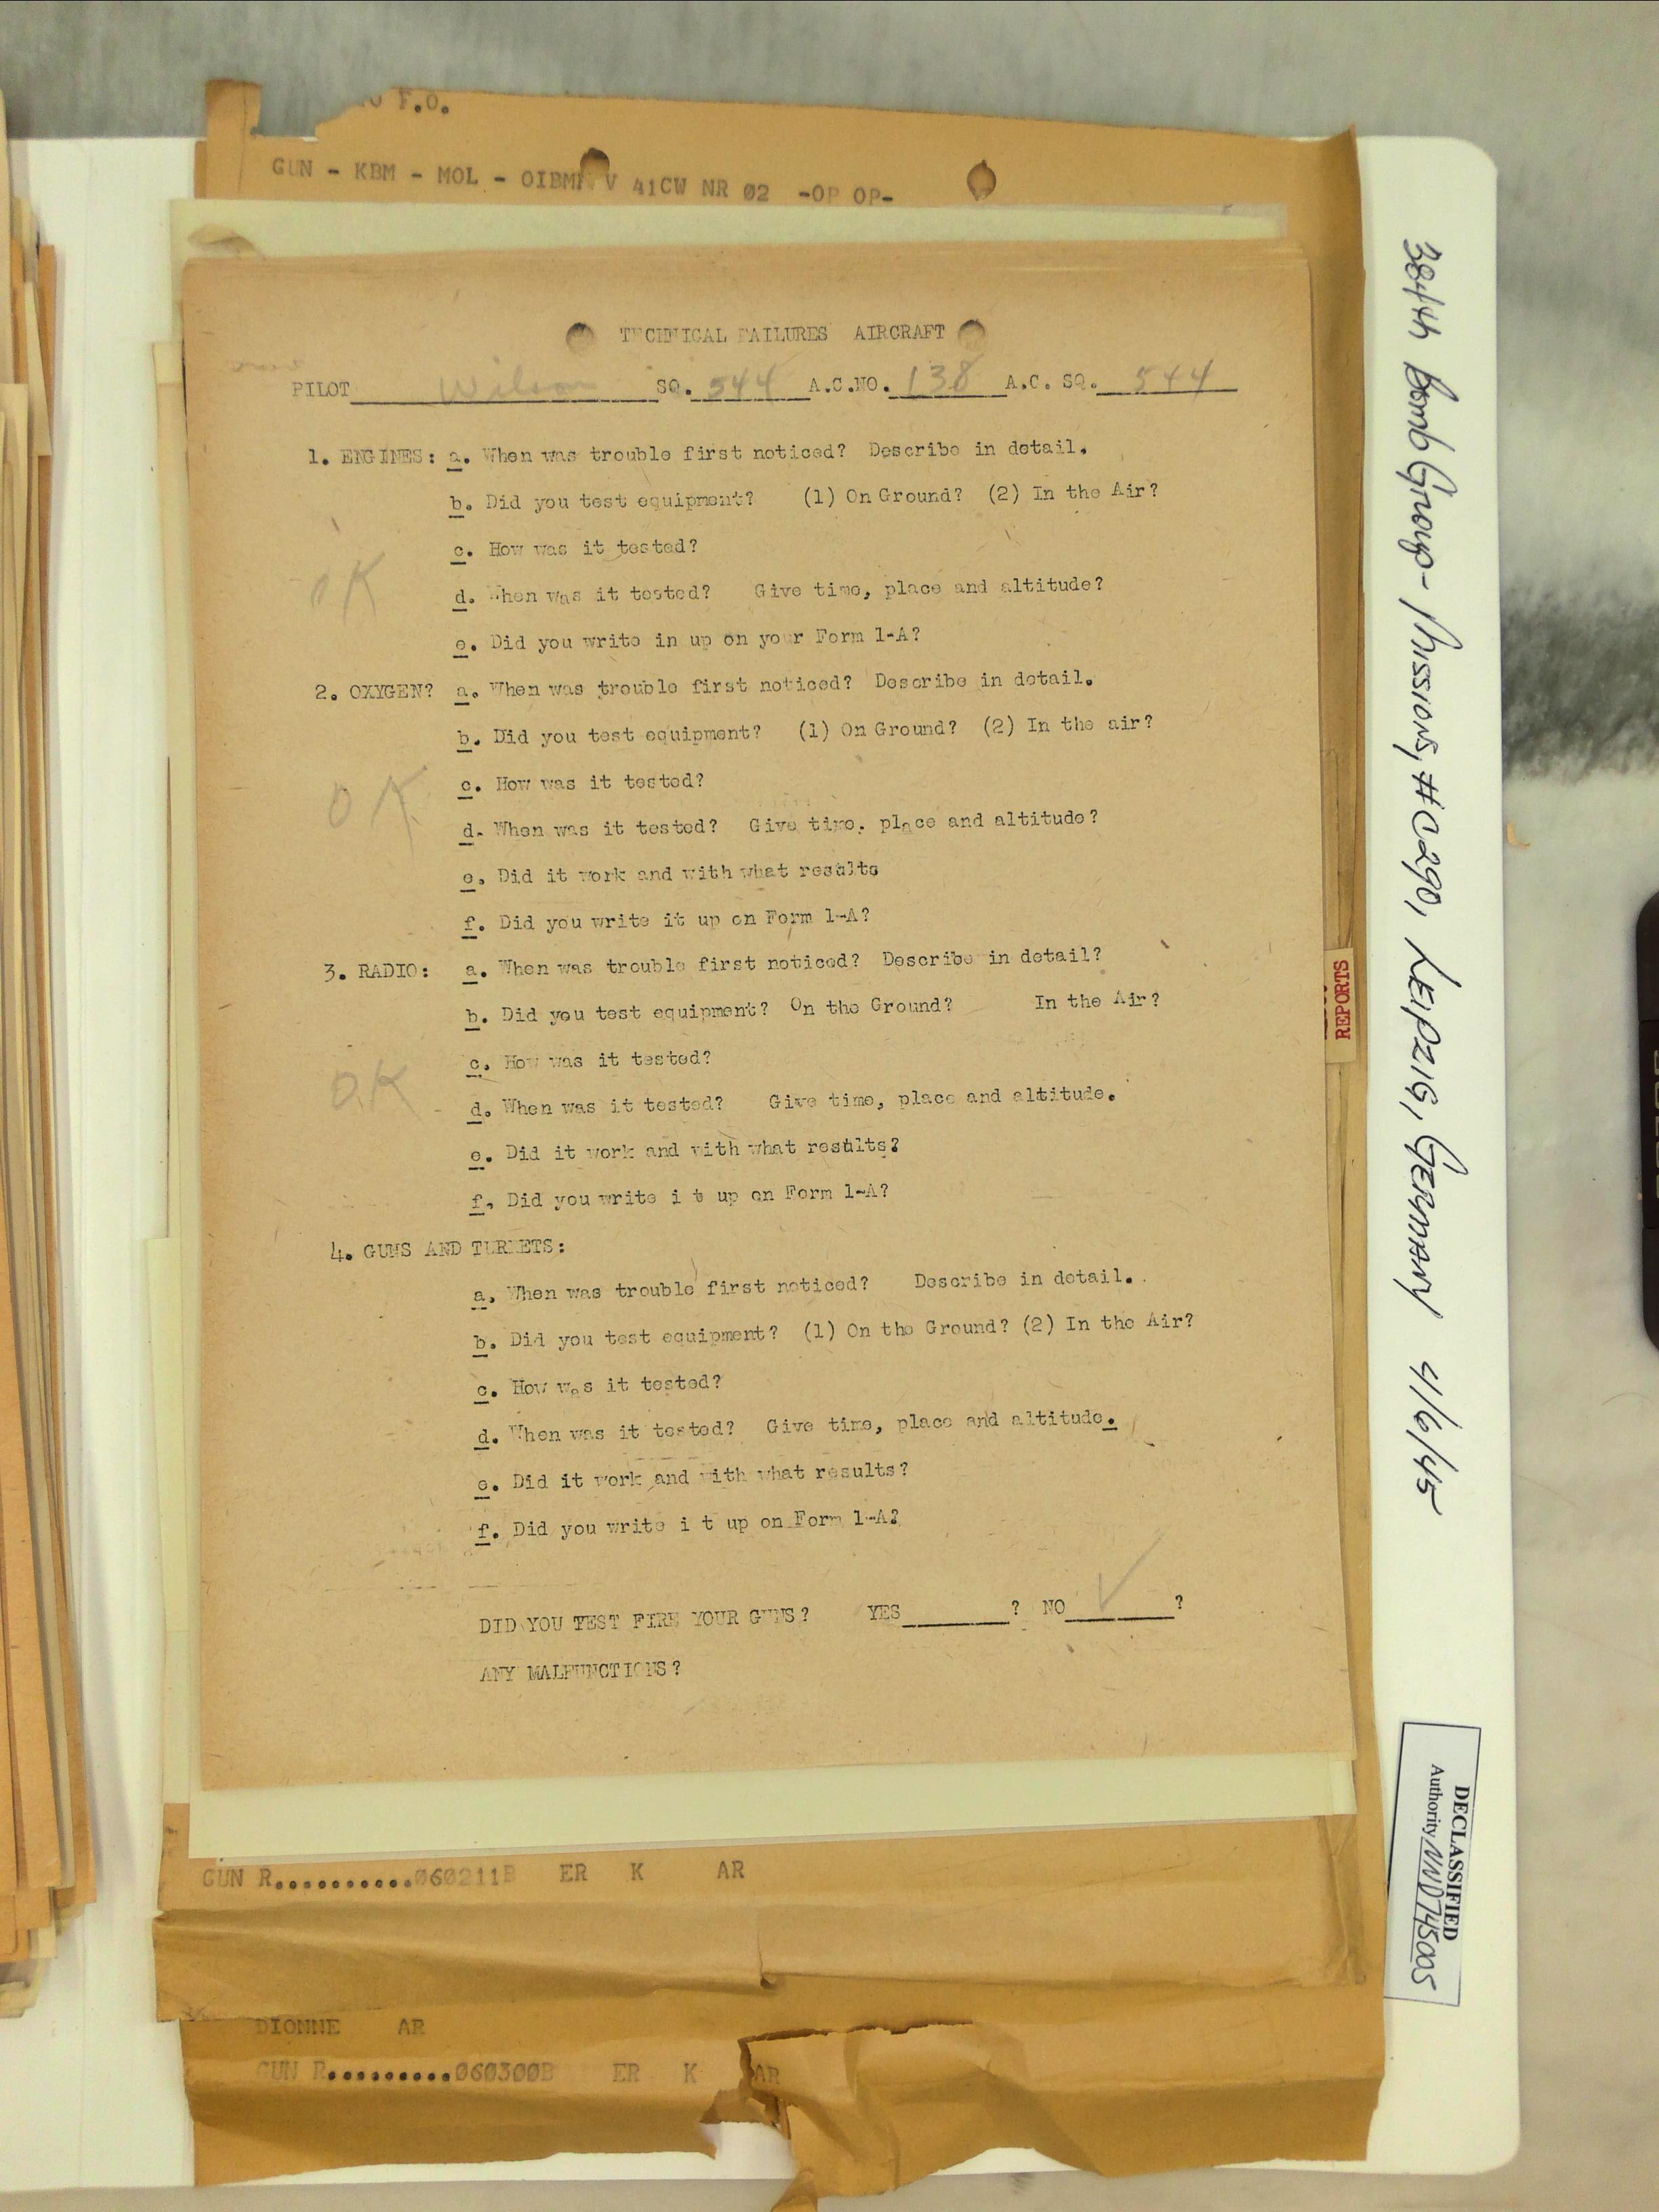 F.O.
GUN - KBM - MOL - OIBMA V 41CW NR 02 -OP OP-
TECHNICAL FAILURES AIRCRAFT
PILOT Wilson SQ. 544 A.C.NO. 138 A.C. SQ. 544
1. ENGINES: a. When was trouble first noticed? Describe in detail.
b. Did you test equipment? (1) On Ground? (2) In the Air?
c. How was it tested?
OK d. When was it tested? Give time, place and altitude?
e. Did you write in up on your Form 1-A?
2. OXYGEN? a. When was trouble first noticed? Describe in detail.
b. Did you test equipment? (1) On Ground? (2) In the air?
OK c. How was it tested?
d. When was it tested? Give time. place and altitude?
e. Did it work and with what results
f. Did you write it up on Form 1-A?
3. RADIO: a. When was trouble first noticed? Describe in detail?
b. Did you test equipment? On the Ground? In the Air?
c. How was it tested?
O.K d. When was it tested? Give time, place and altitude.
e. Did it work and with what results?
f. Did you write i t up on Form 1-A?
4. GUNS AND TURRETS:
a. When was trouble first noticed? Describe in detail.
b. Did you test equipment? (1) On the Ground? (2) In the Air?
c. How was it tested?
d. When was it tested? Give time, place and altitude.
e. Did it work and with what results?
f. Did you write i t up on Form 1-A?
DID YOU TEST FIRE YOUR GUNS? YES ? NO ✓ ?
ANY MALFUNCTIONS?
GUN R...........060211B ER K AR
DIONNE AR
GUN R..........060300B ER K AR
REPORTS
384th Bomb Group - Missions, #0290, LEIPZIG, GERMANY 4/6/45
DECLASSIFIED
Authority NND745005